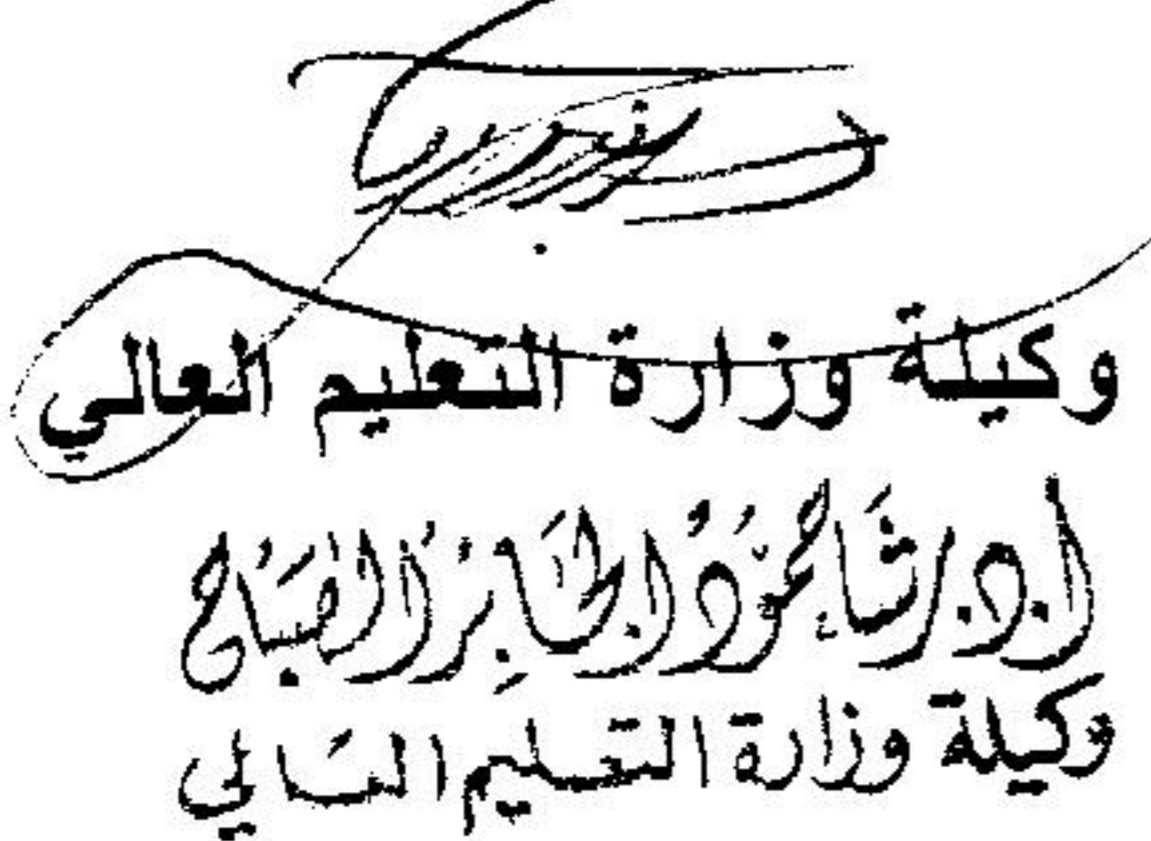 وكيلة وزارة التعليم العالي
أ.د. رشا حمود الجابر الصباح
وكيلة وزارة التعليم العالي